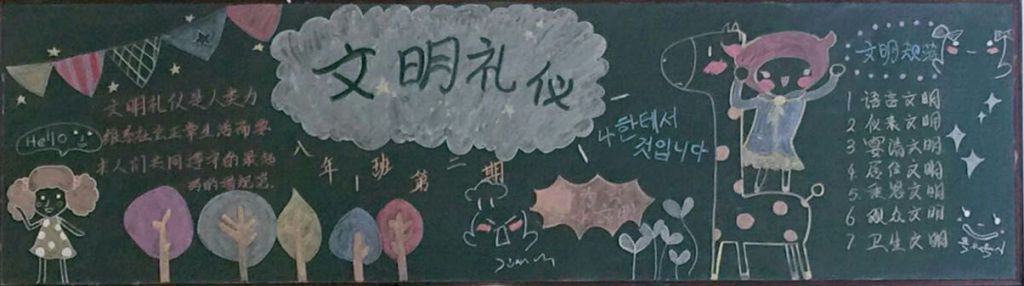 文明礼仪
文明礼仪是人类为
维系社会正常生活而要
求人们共同遵守的最起
码的道德规范.
Hello
八年一班第二期
나한테서
것입니다
文明规范
1 语言文明
2 仪表文明
3 宴请文明
4 居住文明
5 乘客文明
6 观众文明
7 卫生文明